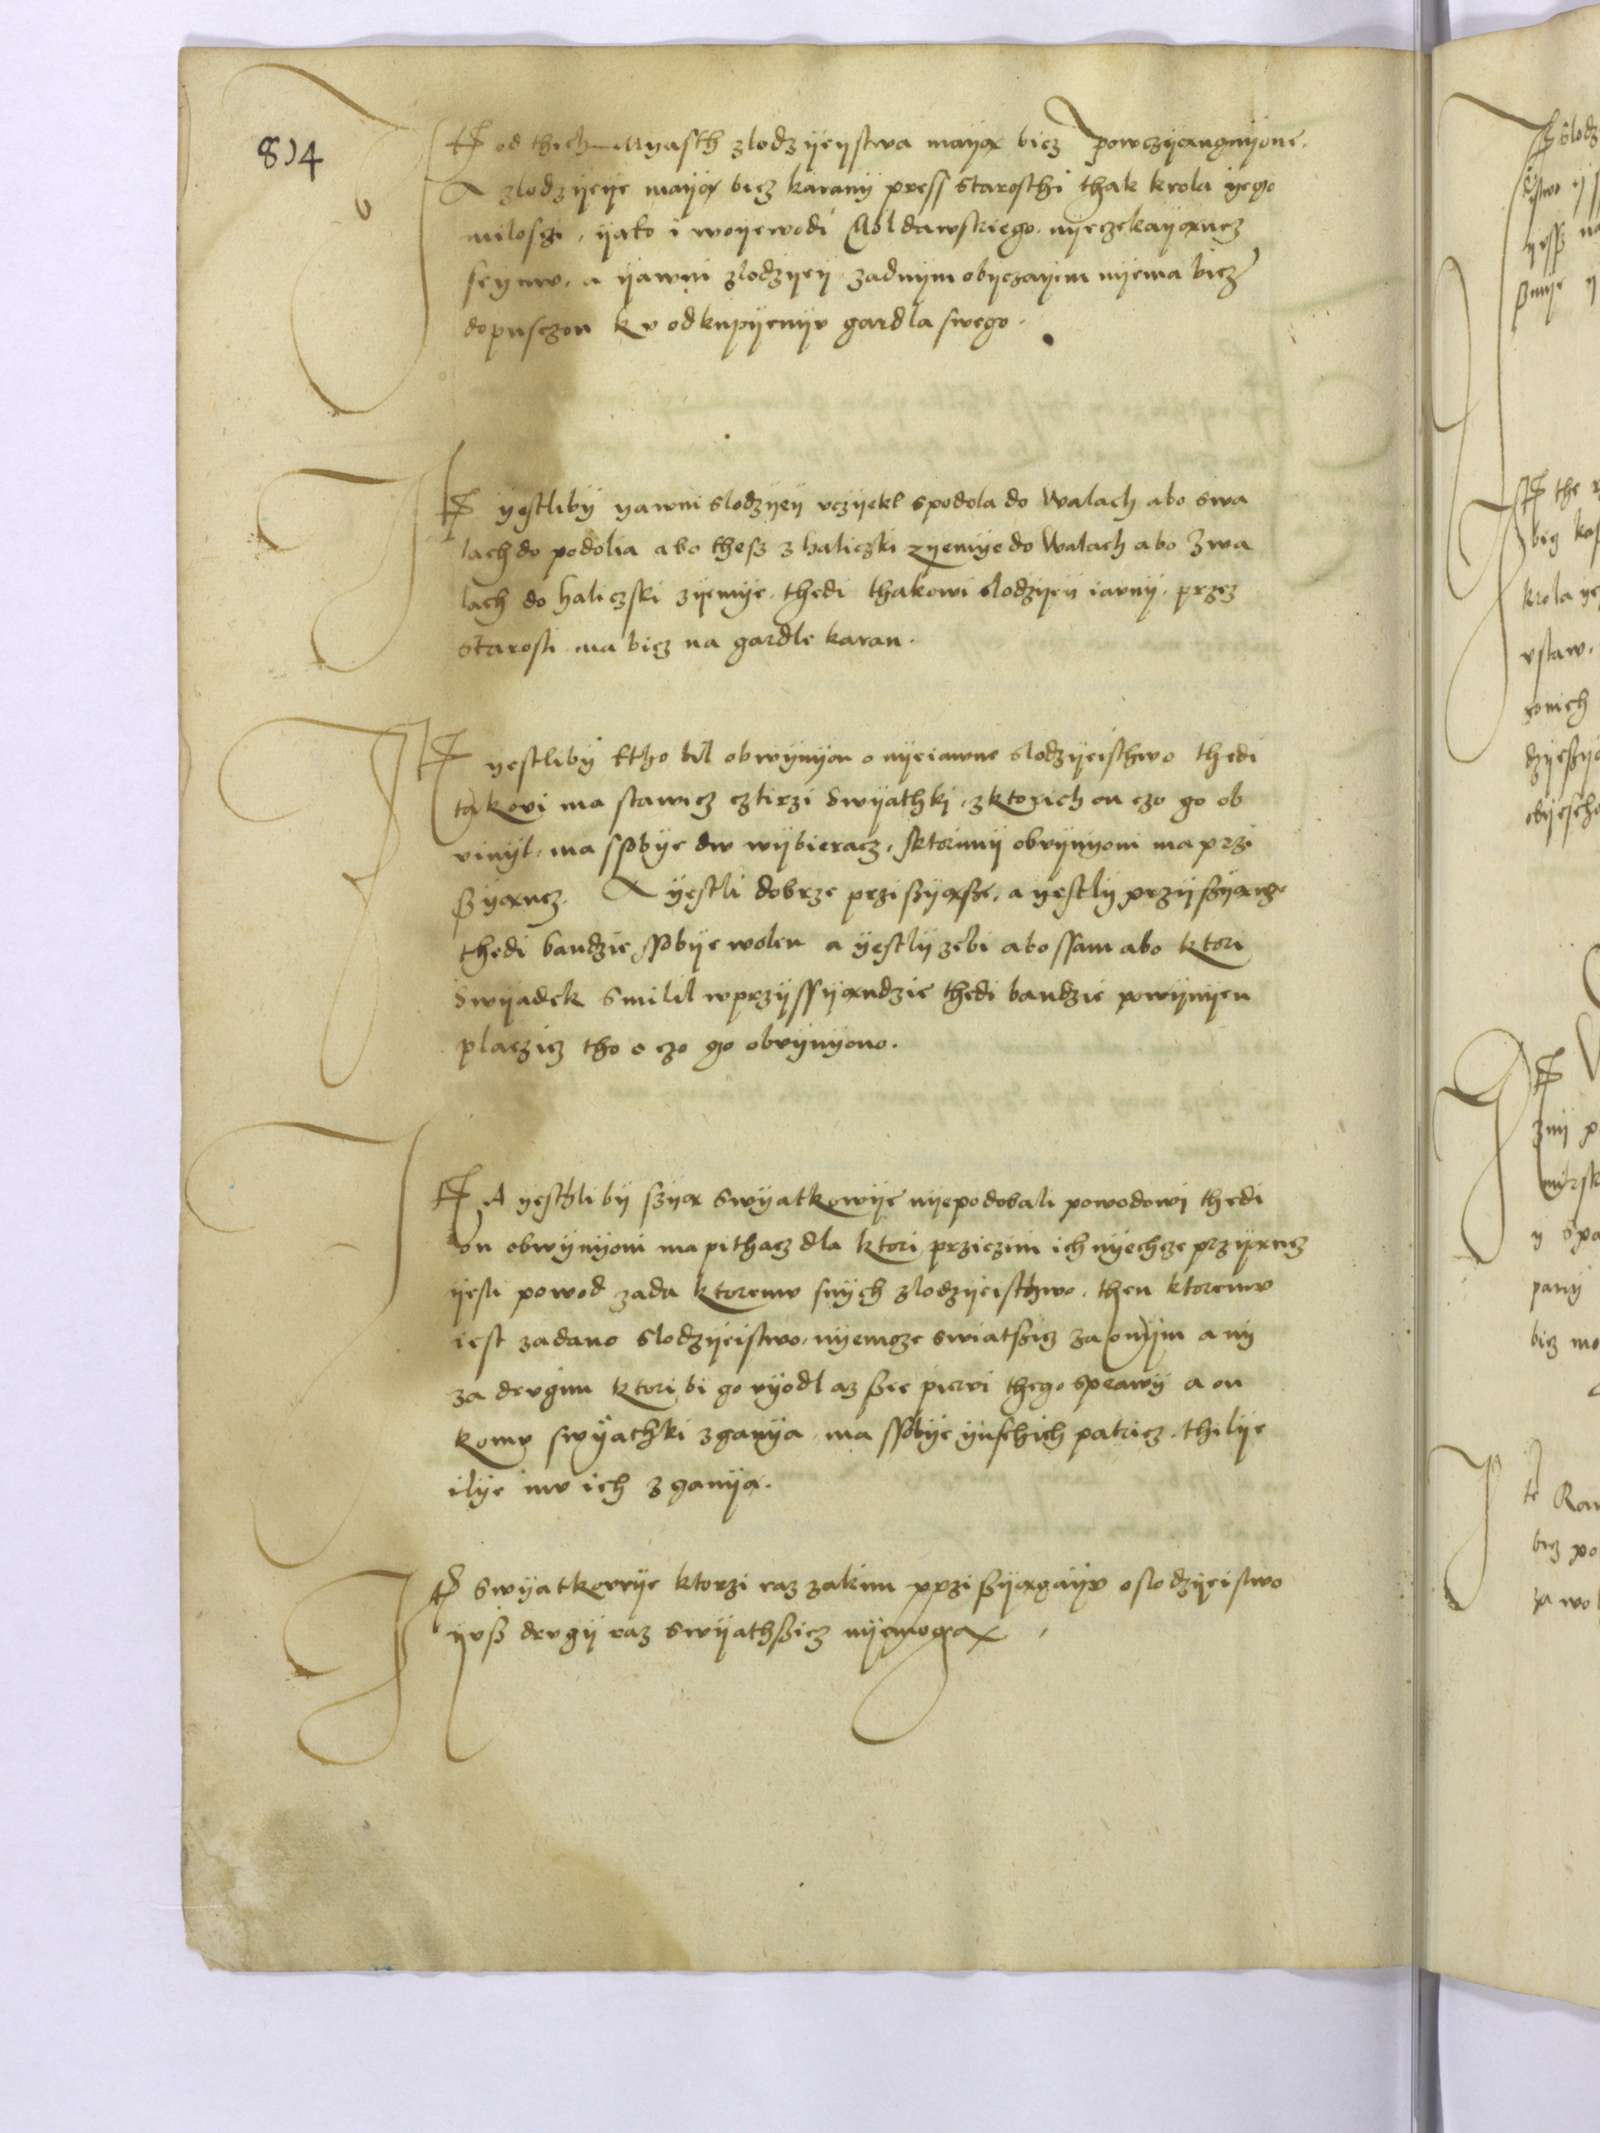 814
It od thich Myasth zlodzyeystwa mayą bicz powczyangnyone.
A zlodzyeye mayą bicz karany press Starosthi thak krola yego
miloszi, yako i woyewodi Moldawskiego. nyeczekayąncz
seymv. a yawni zlodzyey zadnym obyczayem nyema bicz
dopusczon kv odkupyenyv gardla swego.
It yestliby yawni slodzyey vczyekl spodola do Walach abo swa
lach do podolia abo thesz z haliczki zyemye do Walach abo Zwa
lach do haliczski zyemye. thedi thakowi slodzyey iavny. przez
Starosti ma bicz na gardle karan.
It yestliby ktho bil obwynyon o nyeiawne slodzyeisthwo thedi
takovi ma stawicz cztirzi Swyathki, zktorich on czo go ob
vinyl, ma ssobye dw wybieracz, sktorimy obvynyoni ma przi
szyąncz. A yestli dobrze przisyąsze, a yestly przyszyange
thedi bandzie ssobye wolen a yestly zebi abo ssam abo ktori
Swyadek smilil wprzyssyąndzie thedi bandzie powynyen
placzicz tho o czo go obvynyono.
It A yesthliby szyą Swyatkowye nyepodobali powodowi thedi
on obwynyoni ma pithacz dla ktori prziczini ich nyechcze przyyącz
yesli powod zada ktoremv snych zlodzyeisthwo. then ktoremv
iest zadano slodzyeistwo, nyemoze swiatszicz za onym a ny
za drvgim ktori bi go vyodl az sze pierwi thego sprawy a on
komv swyathki zganya, ma ssobye ynschich patricz. thilye
ilye mv ich zganyą.
It Swyatkovye ktorzi raz zakim przisyągayv oslodzyeistwo
yvsz drvgy raz swyathszicz nyemogą